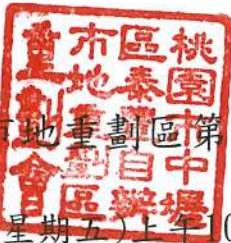 桃園市中壢
區泰自辦
市地重劃區
重劃會
市地重劃區第
星期五)上午10